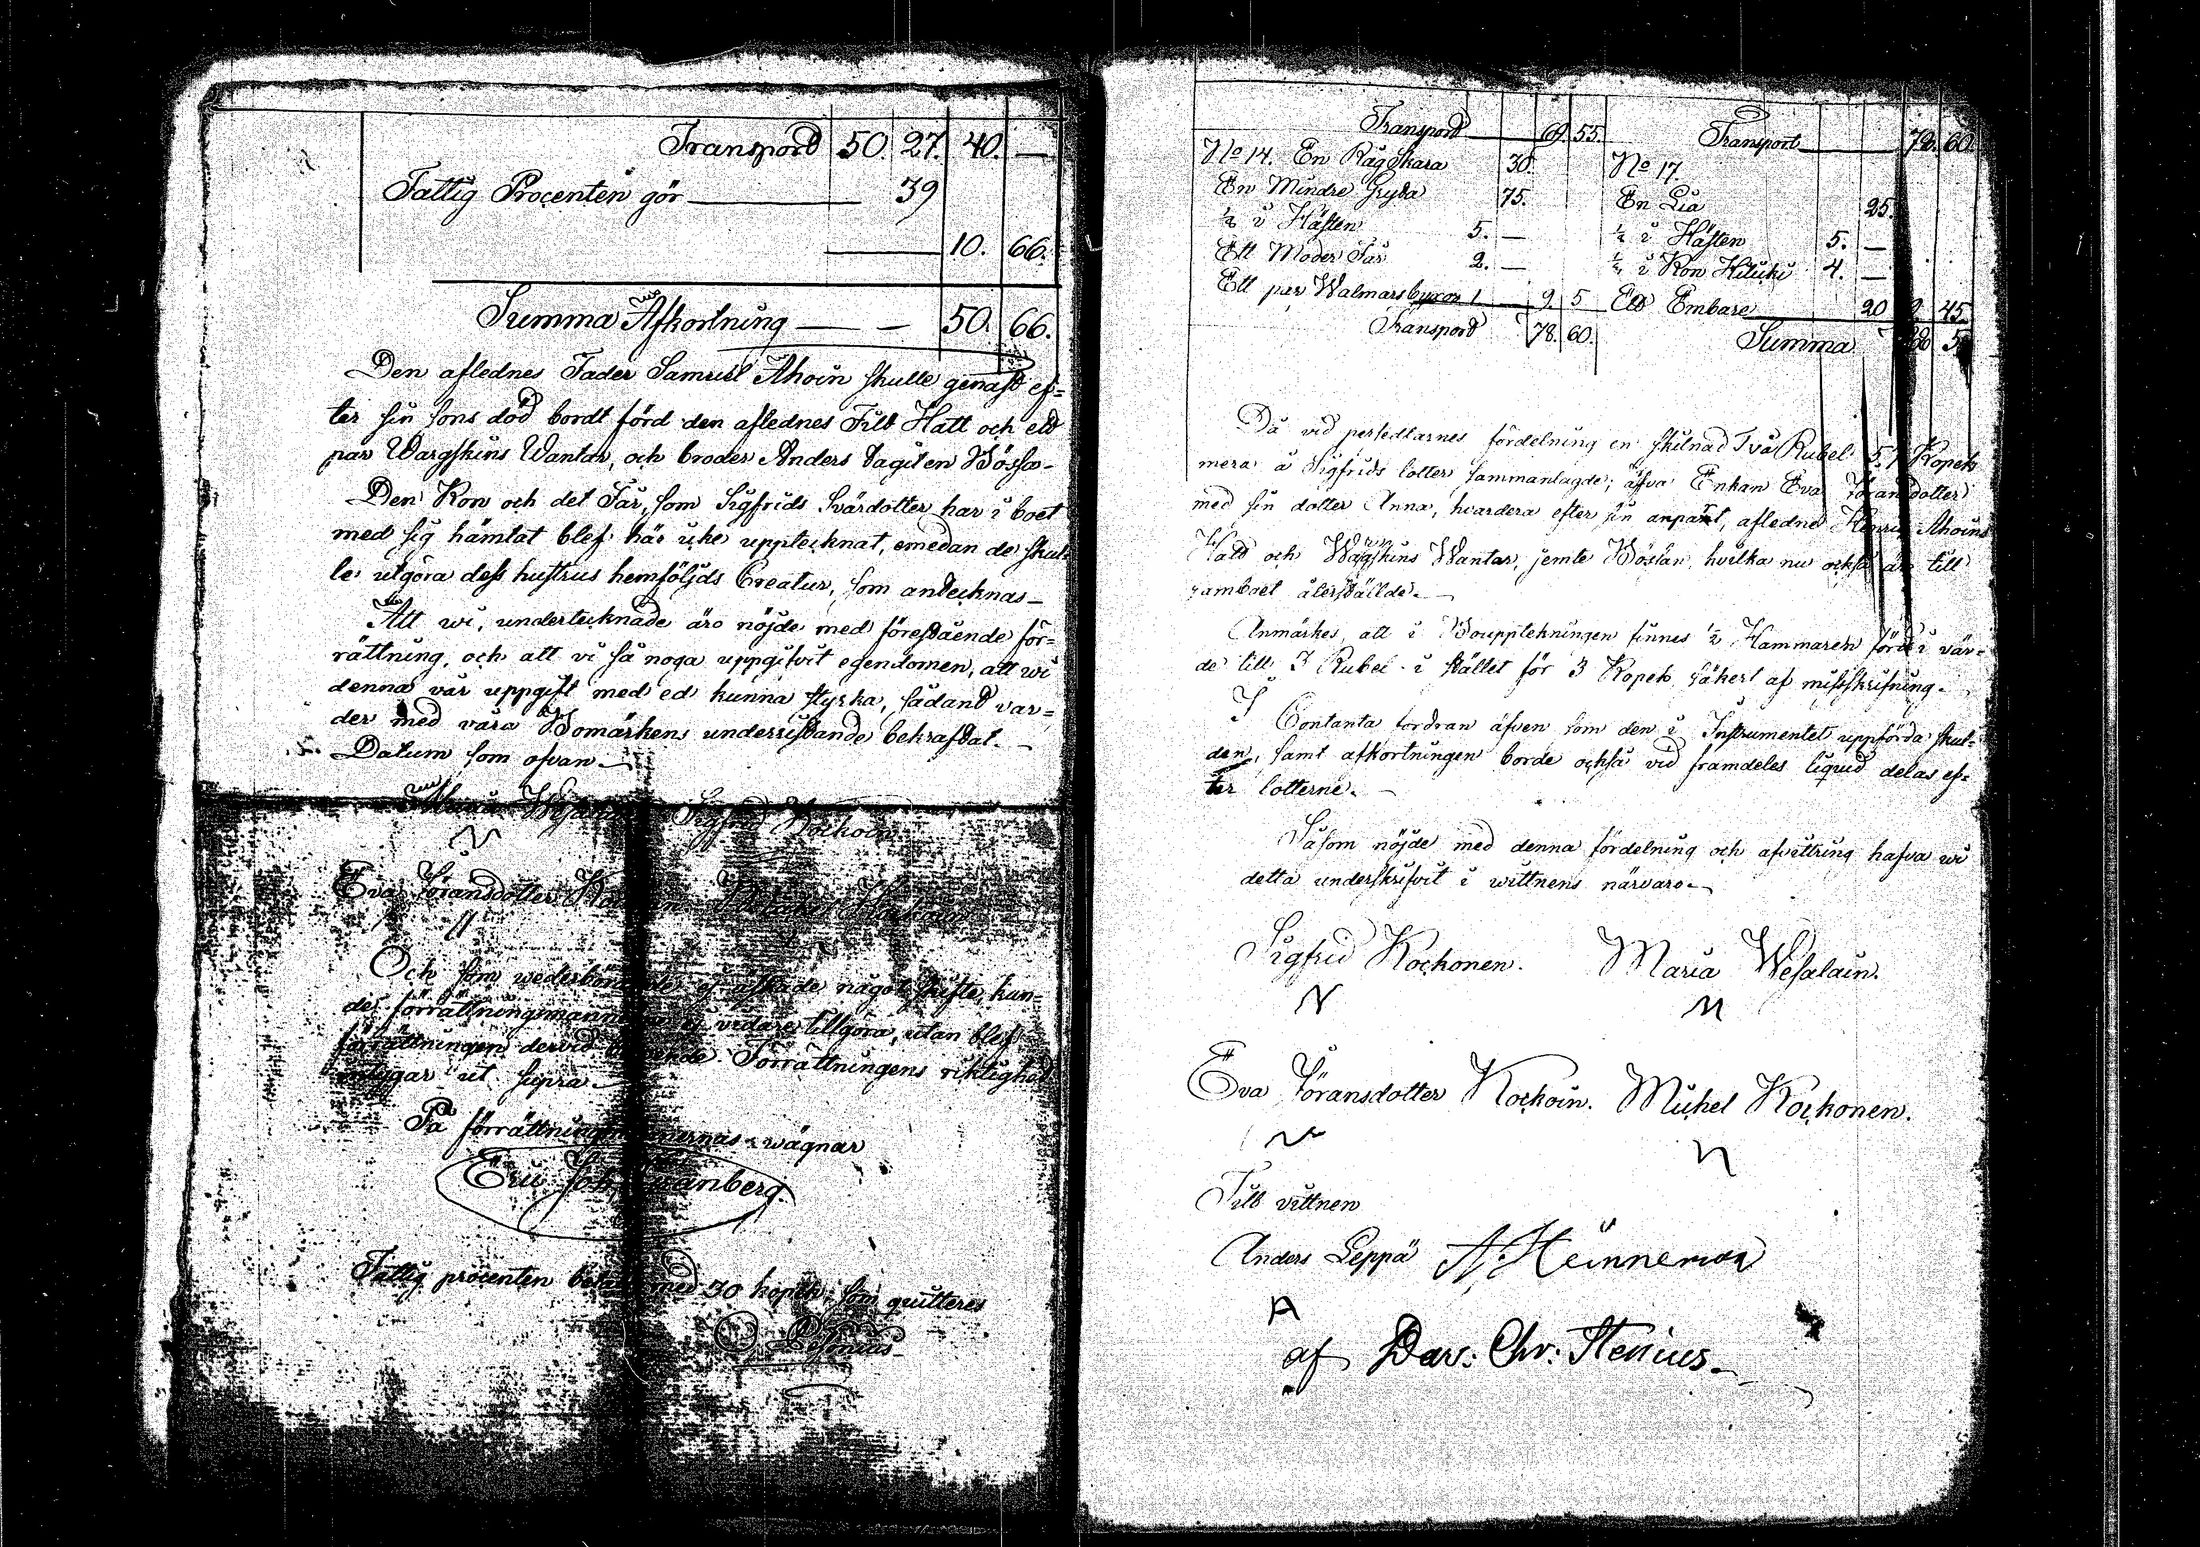 Transpord 50. 27. 40. —
Fattig Procenten gör — 39
— 10. 66.
Summa Afkortning — — 50. 66.
Den aflednes Fader Samuel Ahoin skulle genast ef=
ter sin sons död bordt förd den aflednes Filt Hatt och ett
par Wargskins Wantar, och broder Anders tagit en Bössa.
Den Kon och det Får, som Sigfrids Svärdotter har i boet
med sig hämtat blef här icke upptecknat, emedan de skul
le utgöra dess hustrus hemföljds Creatur, som antecknas —
Att wi, undertecknade äro nöjde med förestående för=
rättning, och att vi så noga uppgifvit egendomen, att wi
denna vår uppgift med ed kunna styrka, sådant var=
der med våra Bomärkens underristande bekraftat. —
Datum som ofvan —
Maria Sigfrid Kockoin
Eva Jöransdotter
Och som ej äskade något skifte, kun=
de ej vidare tillgöra, utan blef
förrättningen dervid Förrättningens riktighet
ut supra —
På wägnar
Eric Joh.
Fattig procenten med 30 kopek, som quitteres
Transpord 69. 55.
No 14. En Råg Skara 30.
En Mindre Gryta 75.
½ i Hästen 5. —
Ett Moder Får 2. —
Ett par Walmarsbyxor 1 — 9. 5
Transpord 78. 60.
Transport 78. 60.
No 17.
En Lia 25.
½ i Hästen 5. —
½ i Kon Kiluki 4. —
Ett Embare 20 9. 45
Summa
Då vid persedlarnes fördelning en skilnad Två Rubel 57 Kopek
mera å Sigfrids lotter sammanlagde; äfva Enkan Eva Jöransdotter
med sin dotter Anna, hvardera efter sin anpart, aflednd Henric Ahoins
Hatt och Wargskins Wantar, jemte Bössan, hvilka nu också äro till
samboet återställde. —
Anmärkes, att i Bouppteckningen finnes ½ Hammaren förd i vär=
de till 3 Rubel i stället för 3 Kopek säkert af misskrifning.
I Contanta fordran äfven som den i Instrumentet uppförda skul=
den, samt afkortningen borde också vid framdeles liquid delas ef=
ter lotterne. —
Såsom nöjde med denna fördelning och afvittring hafva wi
detta underskrifvit i wittnens närvaro —
Sigfrid Kockonen. Maria Wesalain.
Eva Jöransdotter Kockoin. Michel Kockonen.
Till vittnen
Anders Leppä
A
af Dav: Chr: Stenius —